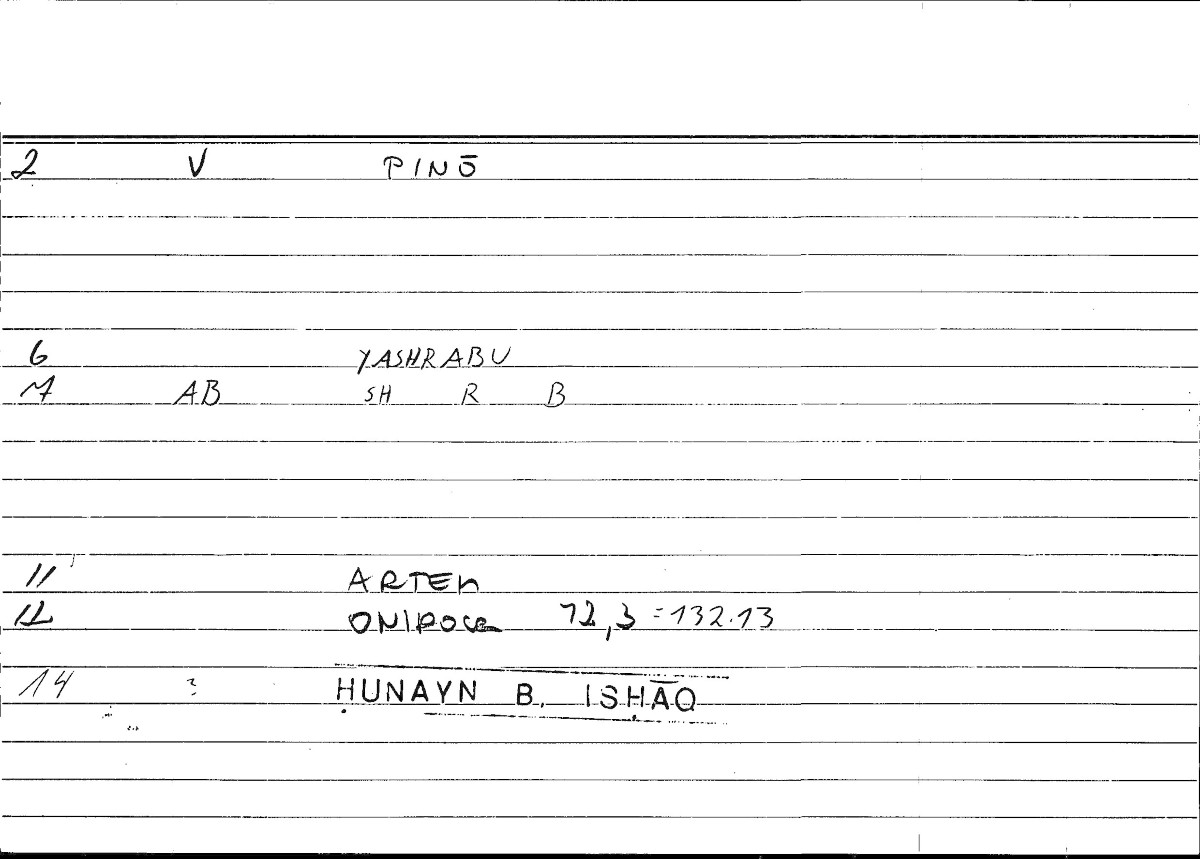 2 V PINŌ
6 YASHRABU
7 AB SH R B
11 ARTEM
12 ONIROCR 72,3 = 132.13
14 ? ḤUNAYN B. ISḤĀQ